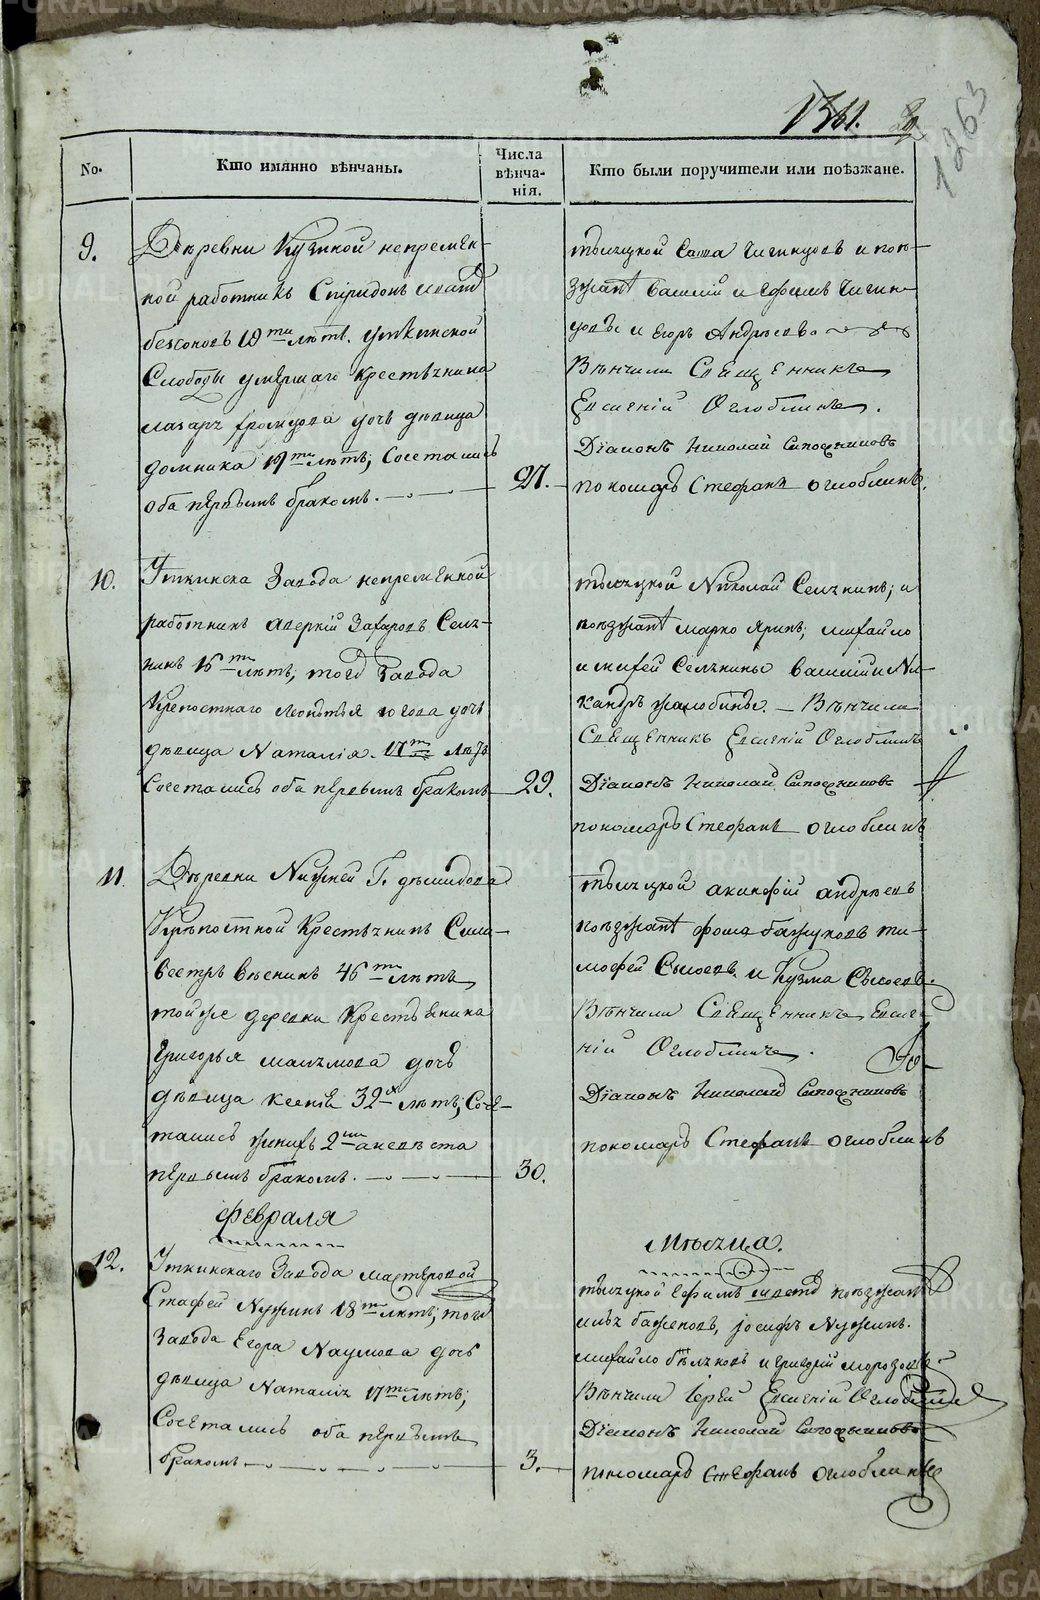 1361.
1263
No.
Кто имянно вѣнчаны.
Числа
вѣнча-
нія.
Кто были поручители или поѣзжане.
9.
Деревни Кузиной непремен-
ной работникъ Спиридонъ
19 ти лѣтъ. Уткинской
Слободы умершаго крестьянина
дочь девица
Домника 19 ти лѣтъ; Сочетались
оба первымъ бракомъ.
27.
тысяцкой Сава и поѣ-
зжане Василій и Ефимъ
и Егоръ Андрѣевъ
Вѣнчали Священникъ
Евгеній Оглоблинъ.
Діаконъ Николай Сапожниковъ
пономарь Стефанъ Оглоблинъ.
10.
Уткинска Завода непременной
работникъ Аверкій Захаровъ Селя-
нинъ 18 ти лѣтъ, того Завода
Крепостнаго дочь
девица Наталія 17 ти лѣтъ
Сочетались оба первымъ бракомъ
29.
тысяцкой Николай Селянинъ; и
поѣзжане Марко Яринъ, Михайло
и Селянины Василій и Ни-
кандръ Жалобины. Вѣнчали
Священникъ Евгеній Оглоблинъ
Діаконъ Николай Сапожниковъ
пономарь Стефанъ Оглоблинъ
11.
Деревни Нижней Г. Демидова
Крѣпостной Крестьянинъ Сили-
вестръ 46 ти лѣтъ
той же деревни Крестьянина
Григорья дочь
девица Ксенія 32 х лѣтъ; Соче-
тались женихъ 2 мъ а невѣста
первымъ бракомъ.
30.
тысяцкой Акинфій Андрѣевъ
поѣзжане Фома Бажуковъ Ти-
мофей Сысоевъ и Кузма Сысоевъ.
Вѣнчали Священникъ Евге-
ній Оглоблинъ.
Діаконъ Николай Сапожниковъ
пономарь Стефанъ Оглоблинъ
Февраля
Мѣсяца.
12.
Уткинскаго Завода мастеровой
Стафей Нужинъ 18 ти лѣтъ; того
Завода Егора Наумова дочь
девица Наталія 17 ти лѣтъ;
Сочетались оба первымъ
бракомъ
3.
тысяцкой Ефимъ поѣзжане
Баженовъ, Іосифъ Нужинъ.
Михайло Бѣляковъ и Григорій Морозовъ.
Вѣнчали Іерей Евгеній Оглоблинъ
Діаконъ Николай Сапожниковъ
пономарь Стефанъ Оглоблинъ
METRIKI.GASO-URAL.RU